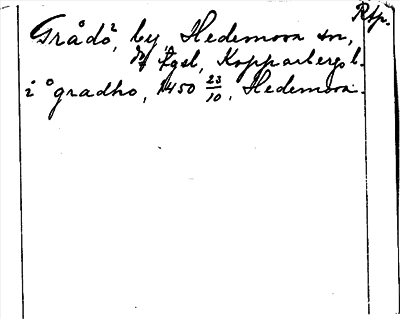 Rtp.
Grådö², by, Hedemora sn,
fgsl, Kopparbergs l.
i ågradho, 1450 23/10, Hedemora.